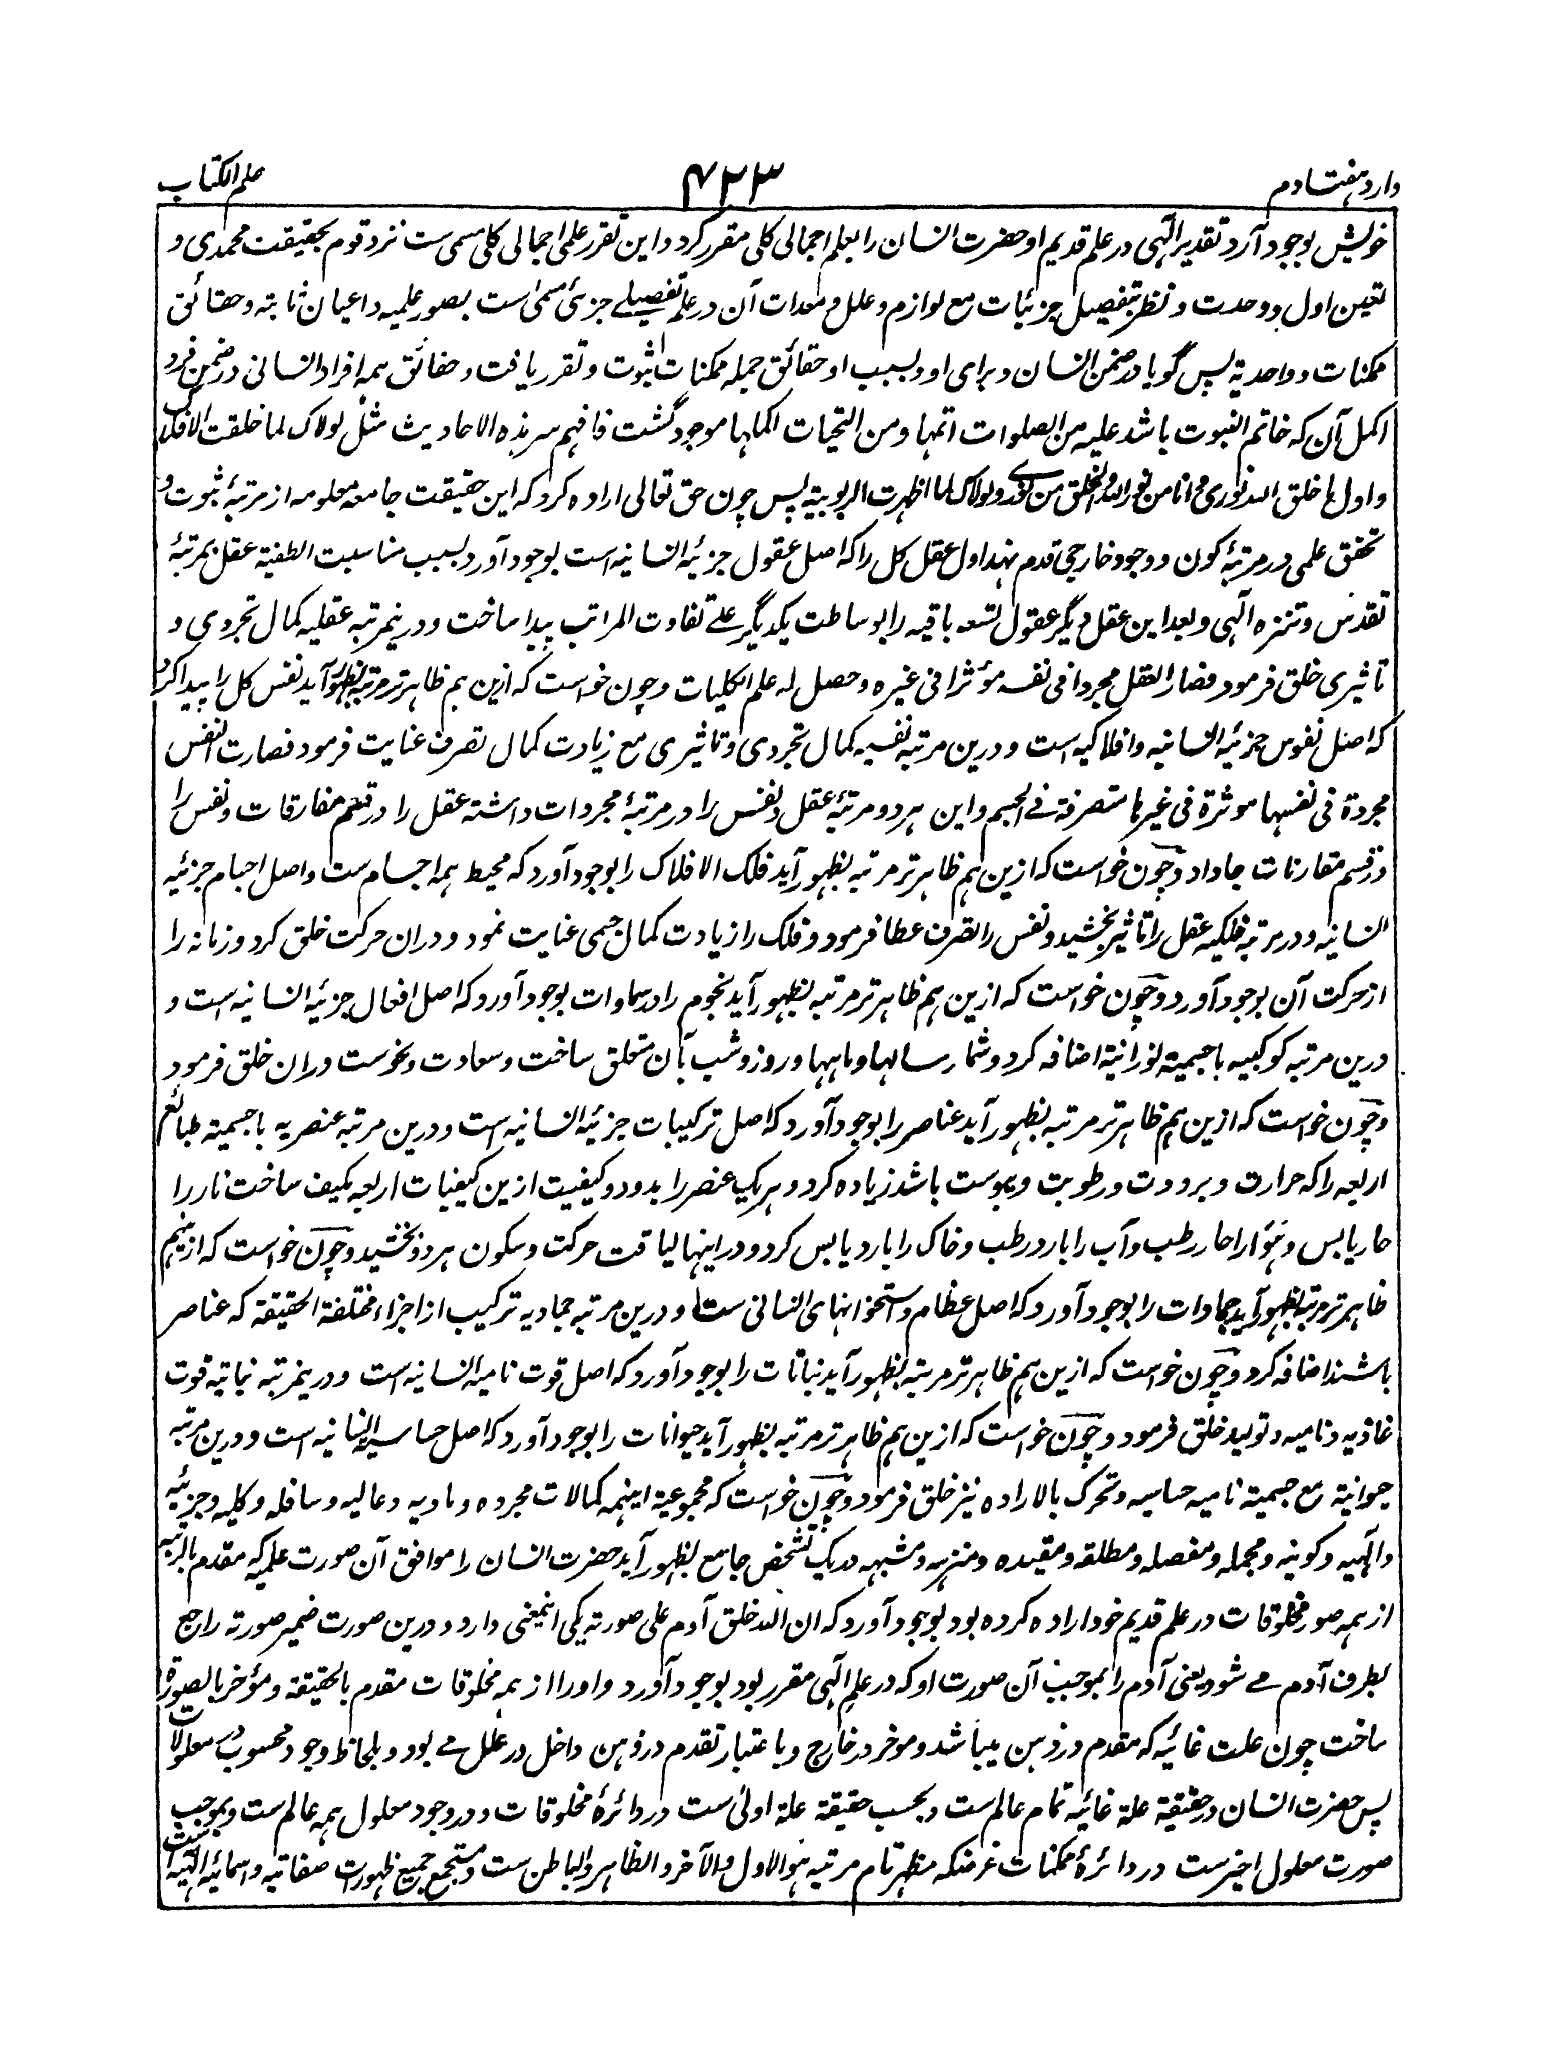 وارد هفتادم
۴۲۳
علم الکتاب
خویش بوجود آرد تقدیر الٓهی در علم قدیم او حضرت انسان را بعلم اجمالی کلی مقرر کرد و این تقرر علمی اجمالی کلی مسمی ست نزد قوم بحقیقت محمدی و
تعین اول و وحدت و نظر بتفصیل جزئیات مع لوازم و علل و معدات آن در علم تفصیلے جزئی مسمیٰ است بصور علمیه و اعیان ثابته و حقائق
ممکنات و واحدیة پس گویا در ضمن انسان و برای او و بسبب او حقائق جمله ممکنات ثبوت و تقرر یافت و حقائق همه افراد انسانی در ضمن فرد
اکمل آن که خاتم النبوت باشد علیه من الصلوات اتمها و من التحیات اکملها موجود گشت فافهم سر هذه الاحادیث مثل لولاک لما خلقت الافلاک
و اول ما خلق الله نوری و انا من نور الله و الخلق من نوری و لولاک لما اظهرت الربوبیة پس چون حق تعالی اراده کرد که این حقیقت جامعه معلومه از مرتبهٔ ثبوت و
تحقق علمی در مرتبهٔ کون و وجود خارجی قدم نهد اول عقل کل را که اصل عقول جزئیه انسانیه است بوجود آورد بسبب مناسبت الطفیة عقل بمرتبهٔ
تقدس و تنزه الٓهی و بعد این عقل دیگر عقول تسعه باقیه را بوساطت یکدیگر علے تفاوت المراتب پیدا ساخت و درینمرتبه عقلیه کمال تجردی و
تاثیری خلق فرمود فصار العقل مجردا فی نفسه مؤثرا فی غیره و حصل له علم الکلیات و چون خواست که ازین هم ظاهرتر مرتبه بظهور آید نفس کل را پیدا کرد
که اصل نفوس جزئیه انسانیه و افلاکیه است و درین مرتبه نفسیه کمال تجردی و تاثیری مع زیادت کمال تصرف عنایت فرمود فصارت النفس
مجردة فی نفسها موثرة فی غیرها متصرفة فے الجسم و این هر دو مرتبهٔ عقل و نفس را در مرتبهٔ مجردات داشته عقل را در قسم مفارقات و نفس را
در قسم مقارنات جا داد و چون خواست که ازین هم ظاهرتر مرتبه بظهور آید فلک الافلاک را بوجود آورد که محیط همه اجسام ست و اصل اجسام جزئیه
انسانیه و در مرتبه فلکیه عقل را تاثیر بخشید و نفس را تصرف عطا فرمود و فلک را زیادت کمال جسمی عنایت نمود و در ان حرکت خلق کرد و زمانه را
از حرکت آن بوجود آورد و چون خواست که ازین هم ظاهرتر مرتبه بظهور آید نجوم را در سماوات بوجود آورد که اصل افعال جزئیه انسانیه است و
درین مرتبه کوکبیه با جسمیة نورانیة اضافه کرد و شمار سالها و ماهها و روز و شب بآن متعلق ساخت و سعادت و نحوست دران خلق فرمود
و چون خواست که ازین هم ظاهرتر مرتبه بظهور آید عناصر را بوجود آورد که اصل ترکیبات جزئیه انسانیه است و درین مرتبه عنصریه با جسمیة طبائع
اربعه را که حرارت و برودت و رطوبت و یبوست باشد زیاده کرد و هر یک عنصر را بدو دو کیفیت ازین کیفیات اربعه مکیف ساخت نار را
حار یابس و هوا را حار رطب و آب را بارد رطب و خاک را بارد یابس کرد و در اینها لیاقت حرکت و سکون هر دو بخشید و چون خواست که ازینهم
ظاهرتر مرتبه بظهور آید جمادات را بوجود آورد که اصل عظام و استخوانهای انسانی ست و درین مرتبه جمادیه ترکیب از اجزاء مختلفة الحقیقة که عناصر
باشند اضافه کرد و چون خواست که ازین هم ظاهرتر مرتبه بظهور آید نباتات را بوجود آورد که اصل قوت نامیه انسانیه است و درینمرتبه نباتیه قوت
غاذیه و نامیه و تولید خلق فرمود و چون خواست که ازین هم ظاهرتر مرتبه بظهور آید حیوانات را بوجود آورد که اصل حاسیه انسانیه است و درین مرتبه
حیوانیة مع جسمیة نامیه حاسیه و تحرک بالاراده نیز خلق فرمود و چون خواست که مجموعیة اینهمه کمالات مجرده و مادیه و عالیه و سافله و کلیه و جزئیه
و الٓهیه و کونیه و مجمله و مفصله و مطلقه و مقیده و منزهه و مشبهه در یک شخص جامع بظهور آید حضرت انسان را موافق آن صورت علمیه که مقدم بالرتبه
از همه صور مخلوقات در علم قدیم خود اراده کرده بود بوجود آورد که ان الله خلق آدم علی صورته یکی اینمعنی دارد و درین صورت ضمیر صورته راجع
بطرف آدم مے شود یعنی آدم را بموجب آن صورت او که در علم الٓهی مقرر بود بوجود آورد و او را از همه مخلوقات مقدم بالحقیقة و مؤخر بالصورة
ساخت چون علت غائیه که مقدم در ذهن میباشد و موخر در خارج و باعتبار تقدم در ذهن داخل در علل مے بود و بلحاظ وجود محسوب در معلولات
پس حضرت انسان در حقیقة علة غائیه تمام عالم ست و بحسب حقیقة علة اولیٰ ست در دائرهٔ مخلوقات و در وجود معلول همه عالم ست و بموجب
صورت معلول اخیرست در دائرهٔ ممکنات غرضکه مظهر تام مرتبه هو الاول و الآخر و الظاهر و الباطن ست و مستجمع جمیع ظهورات صفاتیه و اسمائیه الٓهیه است